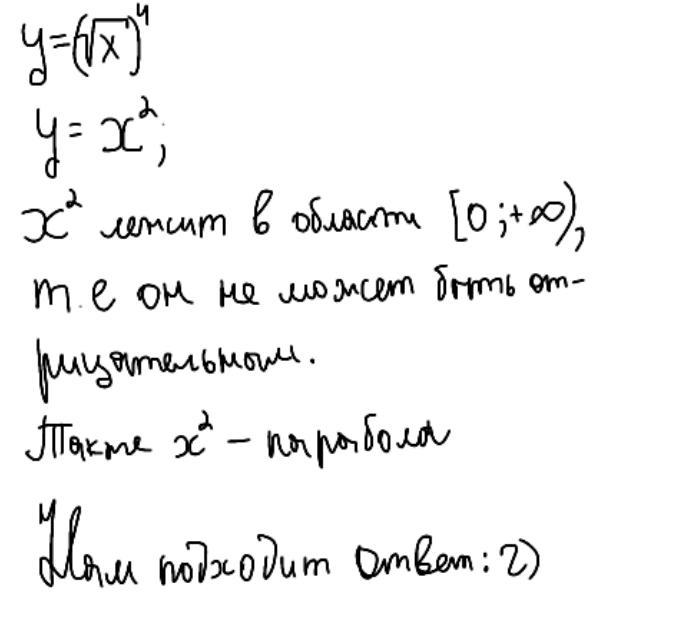 y=(√x)⁴
y= x²;
x² лежит в области [0;+∞),
т.е он не может быть от-
рицательным.
Также x² – парабола
Нам подходит ответ: 2)